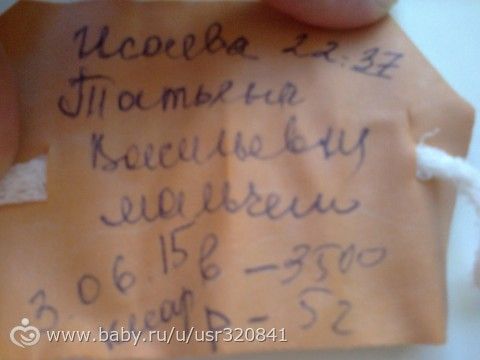 Исаева 22:37
Татьяна
Васильевна
мальчик
3.06.15 в – 3500
р – 52
www.baby.ru/u/usr320841